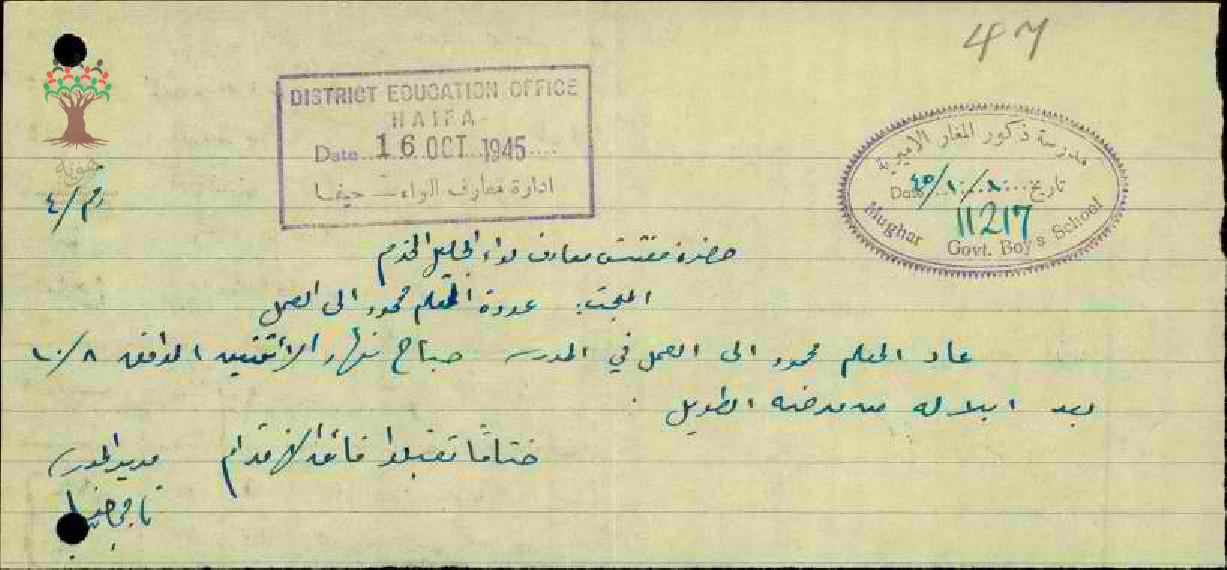 47
DISTRICT EDUCATION OFFICE
HAIFA
Date 16 OCT 1945
ادارة معارف اللواء - حيفا
مدرسة ذكور المغار الاميرية
Date ٤٥/١٠/٨ تاريخ
11217
Mughar Govt. Boy's School
هوية
رقم /٤
حضرة مفتش معارف لواء الجليل المحترم
المبحث: عودة المعلم محمود الى العمل
عاد المعلم محمود الى العمل في المدرسة صباح نهار الاثنين الموافق ١٠/٨
بعد ابلاله من مرضه الطويل.
ختاماً تقبلوا فائق الاحترام
مدير المدرسة
ناجي